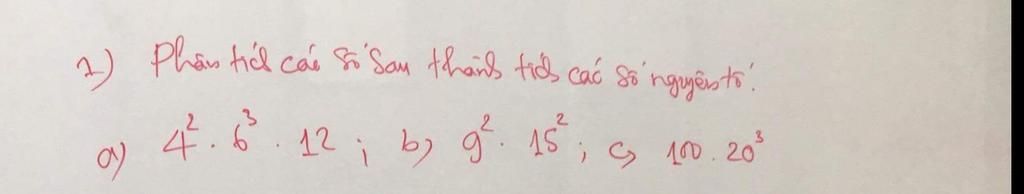 1) Phân tích các số sau thành tích các số nguyên tố.
a) 4². 6³. 12; b) 9². 15²; c) 100. 20³